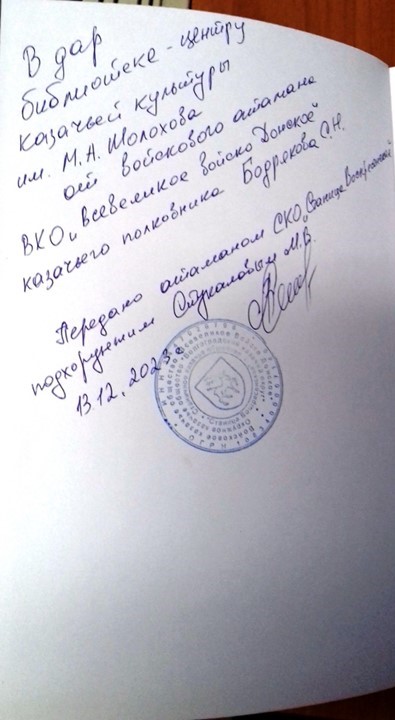 В дар
библиотеке-центру
казачьей культуры
им. М.А. Шолохова
от войскового атамана
ВКО „Всевеликое войско Донское"
казачьего полковника Бодрякова С.Н.
Передано атаманом СКО „Станица Воскресенская"
подхорунжим Стукаловым М.В.
13.12.2023г.